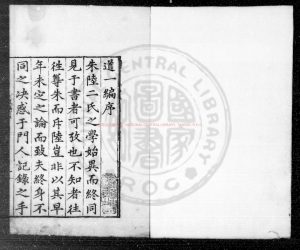 道一編序
朱陸二氏之學始異而終同
見于書者可攷也不知者往
往尊朱而斥陸豈非以其早
年未定之論而致夫終身不
同之決惑于門人記錄之手
CENTRAL LIBRARY
ROC